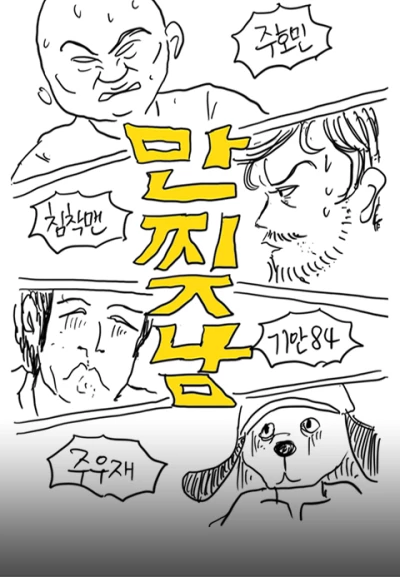 주호민
만찢남
침착맨
기안84
주우재